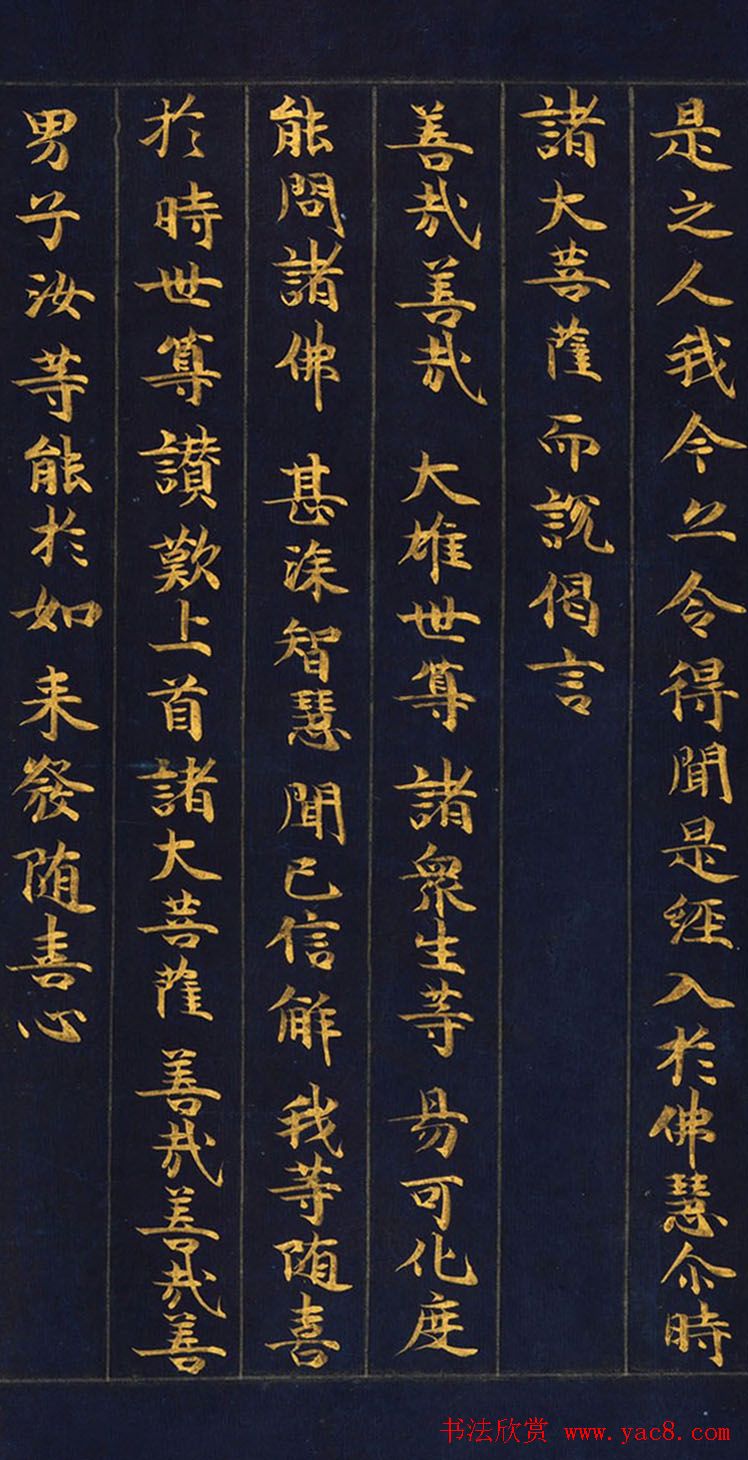 是之人我今亦令得聞是經入於佛慧尒時
諸大菩薩而說偈言
善哉善哉 大雄世尊 諸衆生等 易可化度
能問諸佛 甚深智慧 聞已信解 我等随喜
於時世尊讃歎上首諸大菩薩善哉善哉善
男子汝等能於如来發随喜心
书法欣赏 www.yac8.com